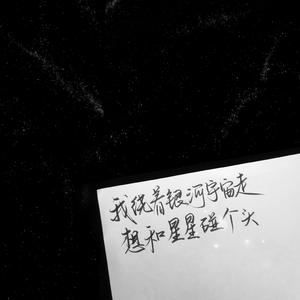 我绕着银河宇宙走
想和星星碰个头